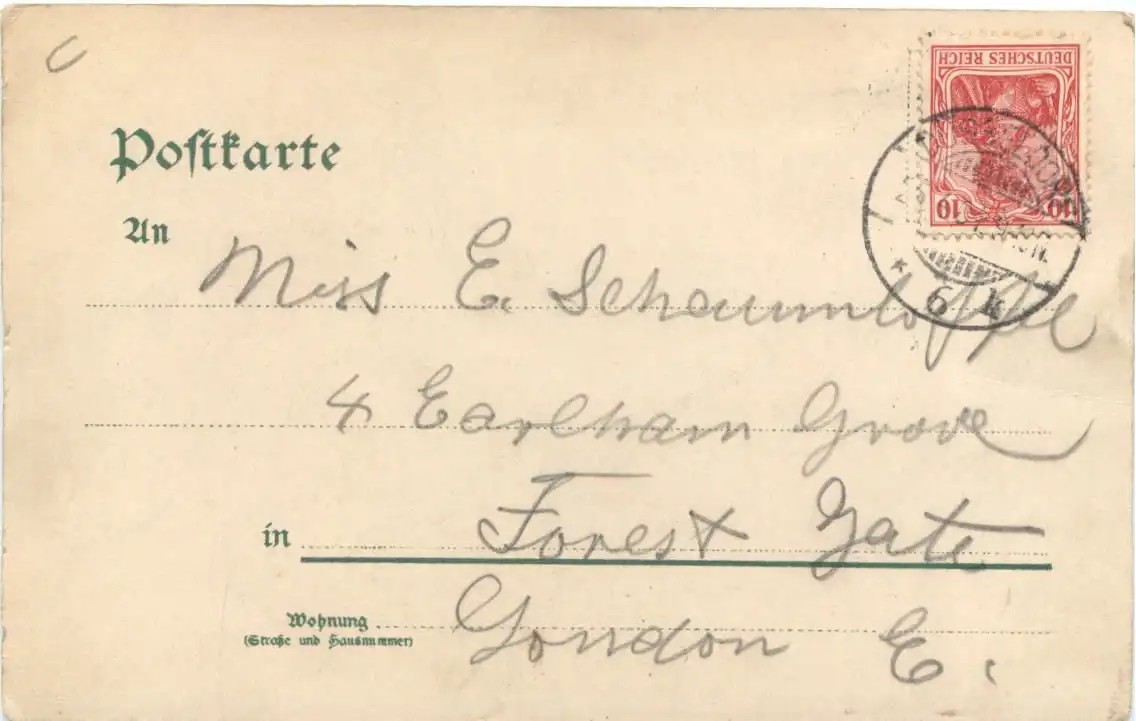 Postkarte
DEUTSCHES REICH
10 10
An
Miss E. Schaumlöffel
4 Earlham Grove
in Forest Gate
6 k
Wohnung
(Straße und Hausnummer)
London E.